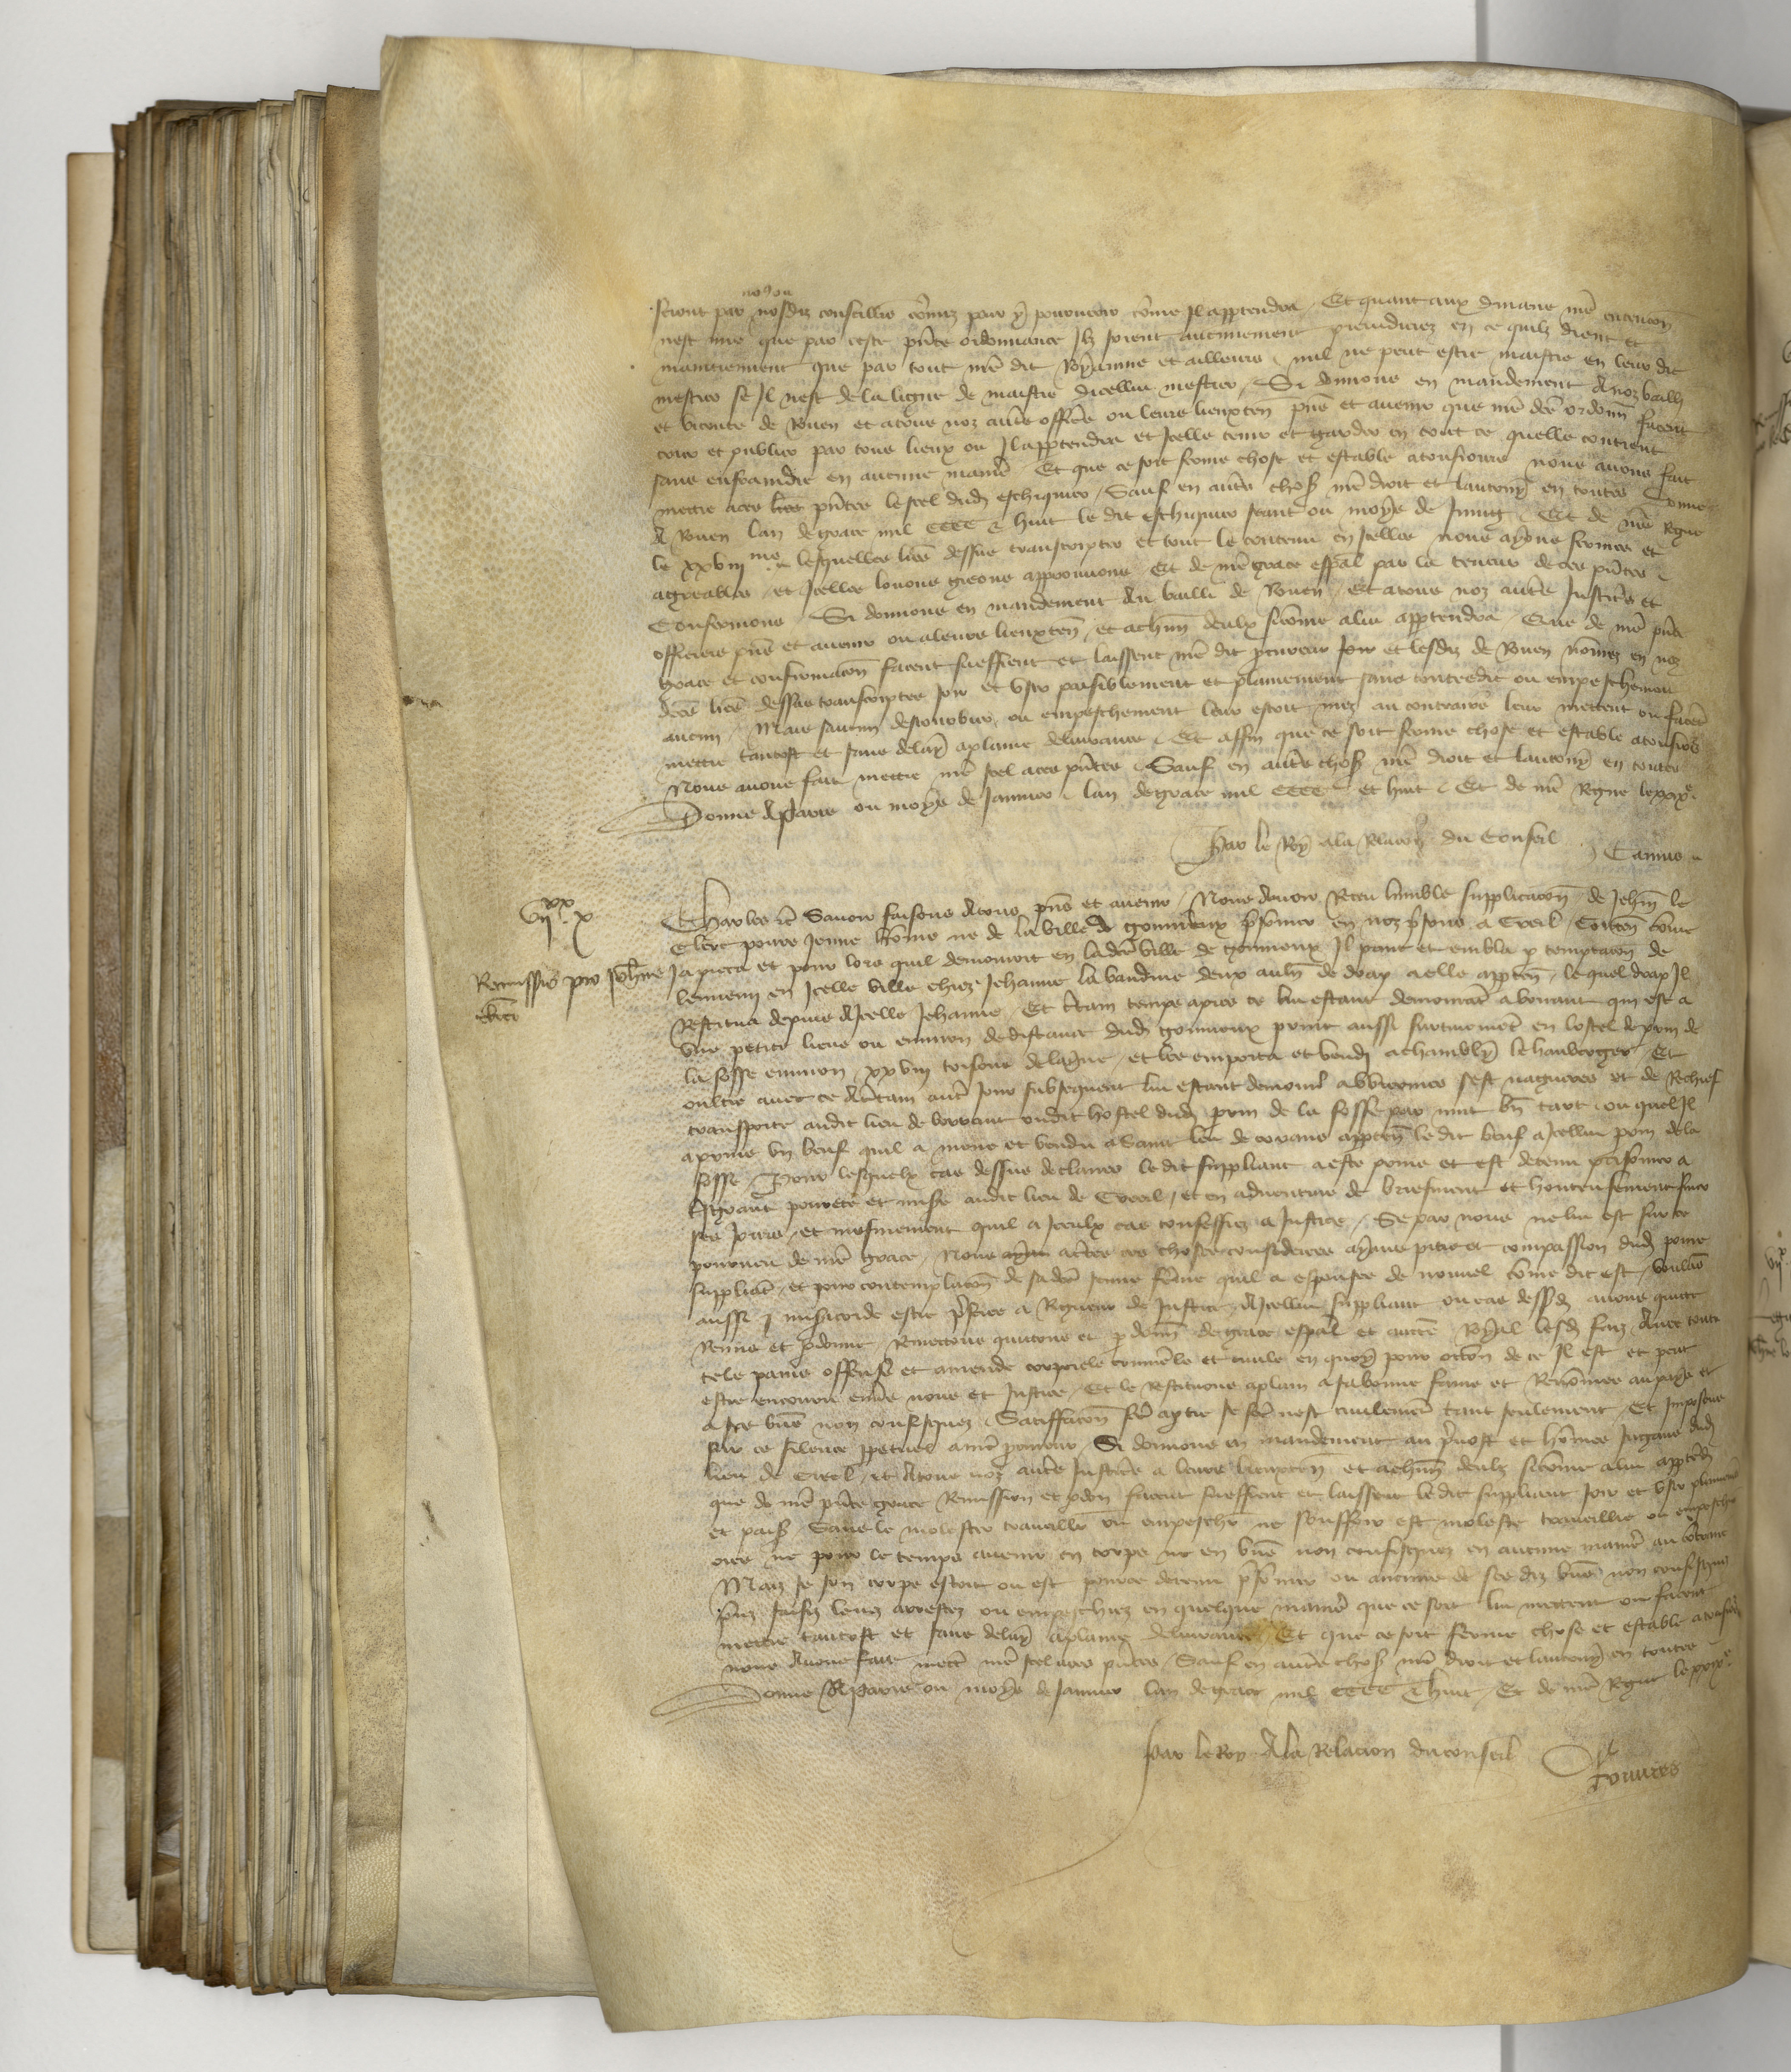 nous ou
seront par nosdiz conseilliers cõmis pour y pourveoir cõme Il appartendra / Et quant aux dimane nr̃e entencion
nest mie que par ceste pñte ordonnance Ilz soient aucunement preiudiciez en ce quilz dient et
maintiennent que par tout nr̃e dit Royaume et ailleurs nul ne peut estre maistre en leur dit
mestier se Il nest de la ligne de maistre dicellui mestier / Si donnons en mandement A noz bailli
et viconte de Rouen et a tous noz autr̃s officiers ou leurs lieuxten̄ pñs et avenir que nr̃e dc̃e ordonñ facent
crier et publier par tous lieux ou Il appartendra et Icelle tenir et garder en tout ce quelle contient
sans enfraindre en aucune manier̃ / Et que ce soit ferme chose et estable a tousiours nous avons fait
mettre a ces lr̃es pñtes le seel dudit eschiquier / Sauf en autr̃s choses nr̃e droit et lautruy en toutes Donne
A Rouen lan de grace mil CCCC et huit le dit eschiquier seant ou moys de Et de nr̃e Regne
le xxviii me lesquelles lr̃es dessus transcriptes et tout le contenu en Icelles nous ayans fermes et
agreables / et Icelles louons greons approuvons / Et de nr̃e grace esp̃al par la teneur de ces pñtes
Confermons / Si donnons en mandement Au bailli de Rouen / Et a tous noz autr̃s Justic̃s et
officiers pñs et avenir ou a leurs lieuxten̄ / et a chũn deulx sicõme a lui appartendra / Que de nr̃e pñte
grace et confirmacõn facent sueffrent et laissent nr̃e dit procureur Joir et lesdiz de Rouen nõmez en noz
dc̃es lr̃es dessus transcriptes Joir et user paisiblement et plainement sans contredit ou empeschement
aucun / Mais saucun destourbier ou empeschement leur estoit mis au contraire leur mettent ou facent
mettre tantost et sans delay a plaine delivrance / Et affin que ce soit ferme chose et estable a tousiours
Nous avons fait mettre nr̃e seel a ces pñtes / Sauf en autr̃s choses nr̃e droit et lautruy en toutes
Donne A Paris ou moys de Janvier lan de grace mil CCCC et huit / Et de nr̃e Regne le xxixe
Par le Roy a la Relacion du Conseil Camus
VIIxx X
Charles etc̃ Savoir faisons A tous pñs et avenir / Nous Avoir Receu lumble supplicacion de Jehan le
Clerc povre Jenne hõme ne de la ville de gouvieux prisonnier en noz prisons a Creeil / Contenant cõme
Remissio pro Johanne clerici
Ja pieca et pour lors quil demouroit en ladc̃e ville de gouvieux Il print et embla par temptacion de
lennemi en Icelle ville chiez Jehanne la baudine deux aulnes de drap a elle appartenant / lequel drap Il
Restitua depuis A Icelle Jehanne / Et certain temps apres ce lui estant demourant a boraut qui est a
une petite lieue ou environ de distance dudit gouvieux print aussi furtivement en lostel de perrin de
la fosse environ xxviii toisons de laigne / et les emporta et vendi a chambly le hauberger / Et
oultre avec ce A certain autre Jour subsequent lui estant demourant a s'est nagueres et de Rechief
transporte audit lieu de boraut oudit hostel dudit perrin de la fosse par nuit bien tart / ou quel Il
a prins un beuf quil a mene et vendu a Saint leu de cerans appartenant le dit beuf a Icellui perrin de la
fosse / Pour lesquelx cas dessus declairez le dit suppliant a este prins et est detenu prisonnier a
grant povrete et misere audit lieu de Creeil / et en adventure de briefment et honteusement finer
ses Jours / et mesmement quil a Iceulx cas confessez a Justice / Se par nous ne lui est sur ce
pourveu de nr̃e grace / Nous actendu ces choses considerees ayans pitie et compassion dudit povre
suppliant / et pour contemplacion de sadc̃e Jenne fẽme quil a espousee de nouvel cõme dit est / voulans
aussi misericorde estre preferee a Rigueur de Justice / A Icellui suppliant ou cas dessusdit avons quicte
Remis et pardonne / Remettons quictons et pardonnons de grace esp̃al et auctorite Royal lesdiz faiz Avec toute
tele paine offense et amende corporele criminele et civile en quoy pour occasion de ce Il est et peut
estre encouru envers nous et Justice / Et le Restituons a plain A sa bonne fame et Renõmee au pays et
a ses biens non confisquez / Satisfacion faicte a partie se faicte nest civilement tant seulement / Et Imposons
sur ce silence perpetuel a nr̃e procureur / Si donnons en mandement au prevost et hõmes Jugans dudit
lieu de Creeil / et A tous noz autr̃s Justic̃s a leurs lieuxten̄ et a chũn deulx sicõme a lui appartendra
que de nr̃e pñte grace Remission et pardon facent sueffrent et laissent le dit suppliant Joir et user plainement
et paisiblement Sans le molester travailler ou empescher ne souffrir estre moleste travaillie ou empeschie
ores ne pour le temps avenir en corps ne en biens non confisquez en aucune manier̃ au contraire
Mais se son corps estoit ou est pour ce detenu prisonnier ou aucuns de ses diz biens non confisquez
prins saisiz levez arrestez ou empeschiez en quelque manier̃ que ce soit lui mettent ou facent
mettre tantost et sans delay a plaine delivrance / Et que ce soit ferme chose et estable a tousiours
nous Avons fait mettre nr̃e seel a ces pñtes / Sauf en autr̃s choses nr̃e droit et lautruy en toutes
Donne A Paris ou moys de Janvier lan de grace mil CCCC et huit / Et de nr̃e Regne le xxixe
Par le Roy A la Relacion du conseil